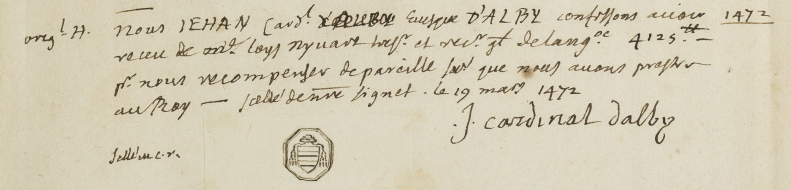 orig.l H. Nous IEHAN Card.l Euesque D'ALBY confessons auoir 1472
receu de m.e loys nyuart tres.r et rec.r g.l de lang.oc 4125.tt
p.r nous recompenser de pareille som̃e que nous auons prestee
au Roy — scellé de nr̃e signet. le 19 mars 1472
J. cardinal dalby
scellé en c. r.